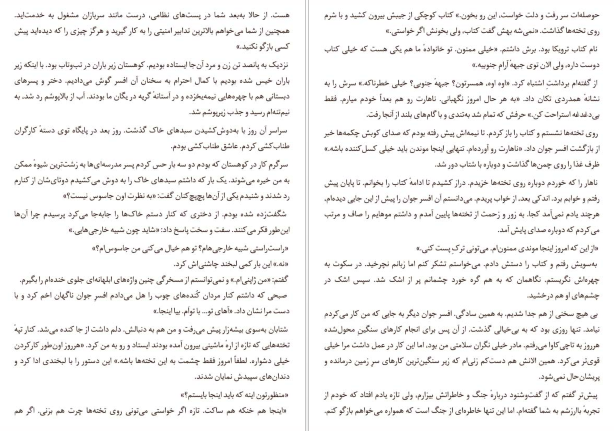 حوصله‌ات سر رفت و دلت خواست، این رو بخون.» کتاب کوچکی از جیبش بیرون کشید و با شرم
روی تخته‌ها گذاشت. «نمی‌شه بهش گفت کتاب، ولی بخونش اگر خواستی.»
نام کتاب تروپکا بود. برش داشتم. «خیلی ممنون. تو خانواده‌ٔ ما هم یکی هست که خیلی کتاب
دوست داره، ولی الان توی جبههٔ آرامِ جنوبیه.»
از گفته‌ام برداشتِ اشتباه کرد. «اوه اوه، همسرتون؟ جبههٔ جنوبی؟ خیلی خطرناکه.» سرش را به
نشانهٔ همدردی تکان داد. «به هر حال امروز نگهبانی. ناهارت رو هم بعداً خودم میارم. فقط
بی‌دغدغه استراحت کن.» حرفش که تمام شد به‌تندی و با گام‌های بلند از آنجا رفت.
روی تخته‌ها نشستم و کتاب را باز کردم. تا نیمه‌اش پیش رفته بودم که صدای کوبش چکمه‌ها خبر
از بازگشت افسر جوان داد. «ناهارت رو آورده‌ام. تنهایی اینجا موندن باید خیلی کسل‌کننده باشه.»
ظرف غذا را روی چمن‌ها گذاشت و دوباره با شتاب دور شد.
ناهار را که خوردم دوباره روی تخته‌ها خزیدم. دراز کشیدم تا ادامهٔ کتاب را بخوانم. تا پایان پیش
رفتم و خوابم برد. اندکی بعد، از خواب پریدم. می‌دانستم آن افسر جوان را پیش از این جایی دیده‌ام،
هرچند یادم نمی‌آمد کجا. به زور و زحمت از تخته‌ها پایین آمدم و داشتم موهایم را صاف و مرتب
می‌کردم که دوباره صدای پایش آمد.
«از این که امروز اینجا موندی ممنون‌ام. می‌تونی ترکِ پست کنی.»
به‌سویش رفتم و کتاب را دستش دادم. می‌خواستم تشکر کنم اما زبانم نچرخید. در سکوت به
چهره‌اش نگریستم. نگاهمان که به هم گره خورد چشمانم پر از اشک شد. سپس اشک در
چشم‌های او هم درخشید.
بی هیچ سخنی از هم جدا شدیم. به همین سادگی. افسر جوان دیگر به جایی که من کار می‌کردم
نیامد. تنها روزی بود که به بی‌خیالی گذشت. از آن پس برای انجام کارهای سنگین محول‌شده
هرروز به تاچی‌کاوا می‌رفتم. مادر خیلی نگران سلامتی من بود، اما این کار در عمل داشت مرا خیلی
قوی‌تر می‌کرد. همین الانش هم دست‌کم زنی‌ام که زیر سنگین‌ترین کارهای سرِ زمین درمانده و
پریشان‌حال نمی‌شود.
پیش‌تر گفتم که از گفت‌وشنود دربارهٔ جنگ و خاطراتش بیزارم، ولی تازه یادم افتاد که خودم از
تجربهٔ باارزشم به شما گفته‌ام. اما این تنها خاطره‌ای از جنگ است که همواره می‌خواهم بازگو کنم.
هست. از حالا به‌بعد شما در پست‌های نظامی، درست مانند سربازان مشغول به خدمت‌اید.
همچنین از شما می‌خواهم بالاترین تدابیر امنیتی را به کار گیرید و هرگز چیزی را که دیده‌اید پیش
کسی بازگو نکنید.»
نزدیک به پانصد تن زن و مرد آن‌جا ایستاده بودیم. کوهستان زیر باران در تب‌وتاب بود. با اینکه زیر
باران خیس شده بودیم با کمال احترام به سخنان آن افسر گوش می‌دادیم. دختر و پسرهای
دبستانی هم با چهره‌هایی نیمه‌یخ‌زده و در آستانهٔ گریه در یگان ما بودند. آب از بالاپوشم رد شد، به
نیم‌تنه‌ام رسید و جذب زیرپوشم شد.
سراسر آن روز با به‌دوش‌کشیدن سبدهای خاک گذشت. روز بعد در پایگاه توی دستهٔ کارگران
طناب‌کشی کردم. عاشق طناب‌کشی بودم.
سرگرم کار در کوهستان که بودم دو سه بار حس کردم پسر مدرسه‌ای‌ها به زشت‌ترین شیوهٔ ممکن
به من خیره می‌شوند. یک بار که داشتم سبدهای خاک را به دوش می‌کشیدم دوتای‌شان از کنارم
رد شدند و شنیدم یکی از آن‌ها پچ‌پچ‌کنان گفت: «به نظرت اون جاسوس نیست؟»
شگفت‌زده شده بودم. از دختری که کنار دستم خاک‌ها را جابه‌جا می‌کرد پرسیدم چرا آن‌ها
این‌طور فکر می‌کنند. سفت و سخت پاسخ داد: «شاید چون شبیه خارجی‌هایی.»
«راست‌راستی شبیه خارجی‌هام؟ تو هم خیال می‌کنی من جاسوس‌ام؟»
«نه.» این بار کمی لبخند چاشنی‌اش کرد.
گفتم: «من ژاپنی‌ام.» و نمی‌توانستم از مسخرگی چنین واژه‌های ابلهانه‌ای جلوی خنده‌ام را بگیرم.
صبحی که داشتم کنار مردان کُنده‌های چوب را هل می‌دادم افسرِ جوان ناگهان اخم کرد و با
دست مرا نشان داد. «آهای تو… با توام. بیا اینجا.»
شتابان به‌سوی بیشه‌زار پیش می‌رفت و من هم به دنبالش. دلم داشت از جا کنده می‌شد. کنار تپهٔ
تخته‌هایی که تازه از اره‌ٔ ماشینی بیرون آمده بودند ایستاد و رو به من کرد. «هرروز اون‌طور کارکردن
خیلی دشواره. لطفاً امروز فقط چشمت به این تخته‌ها باشه.» این دستور را با لبخندی ادا کرد و
دندان‌های سپیدش نمایان شدند.
«منظورتون اینه که باید اینجا بایستم؟»
«اینجا هم خنکه هم ساکت. تازه اگر خواستی می‌تونی روی تخته‌ها چرت هم بزنی. اگر هم